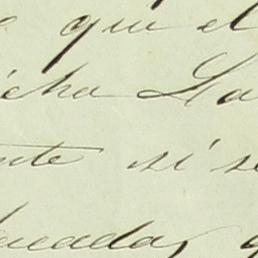 que el
cha La
nte si se
cada,